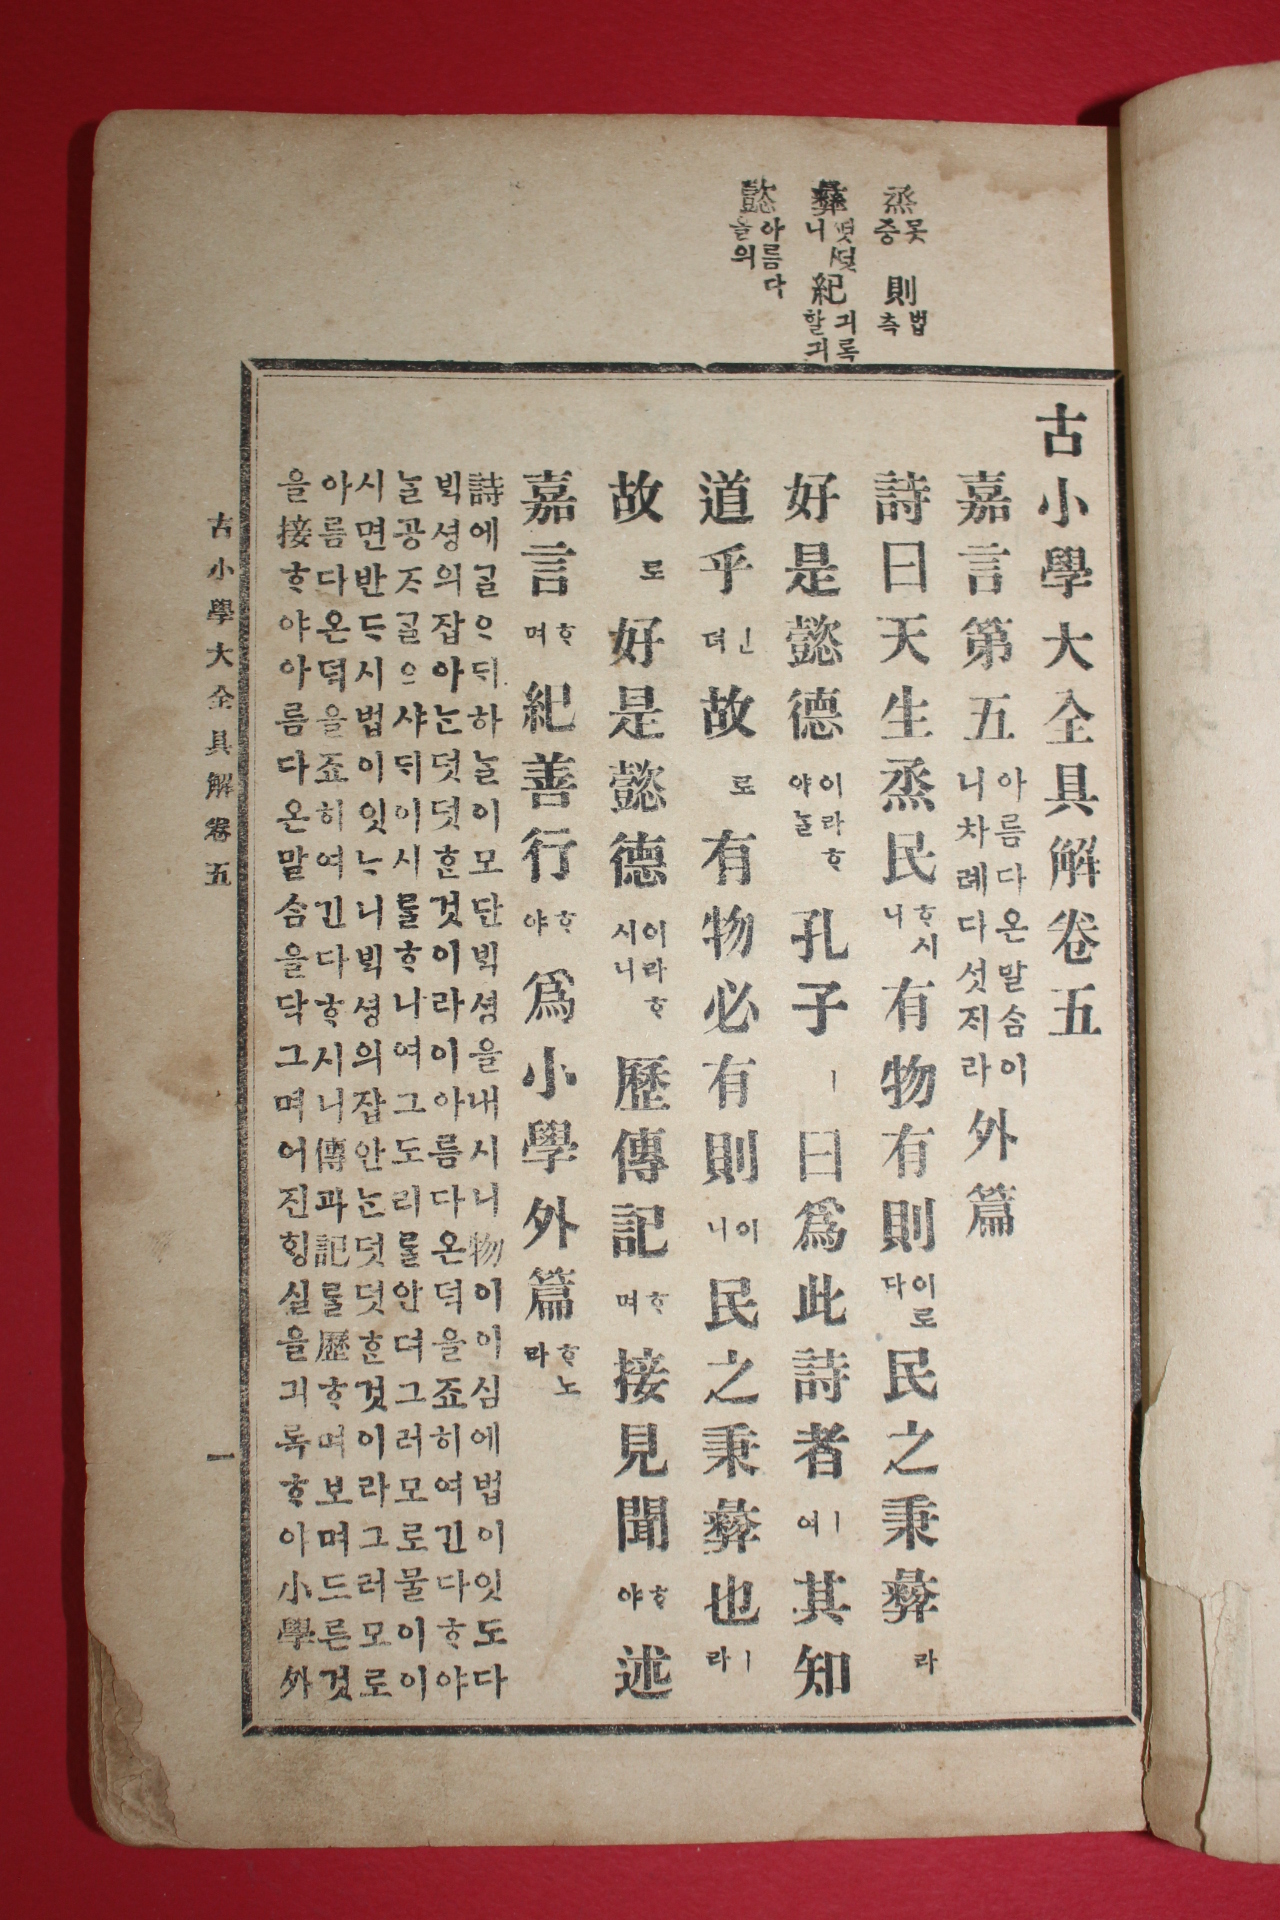 烝 못중 則 법측
彝 ᄯᅥᆺᄯᅥᆺ니 紀 긔록할긔
懿 아름다울의
古小學大全具解卷五
嘉言第五 아름다온말솜이니차례다섯재라 外篇
詩曰天生烝民ᄒᆞ시니有物有則이로다民之秉彝라
好是懿德이라ᄒᆞ야ᄂᆞᆯ孔子ㅣ曰爲此詩者ㅣ여其知
道乎ㅣㄴ뎌故로有物必有則이니民之秉彝也ㅣ라
故로好是懿德이라ᄒᆞ시니歷傳記ᄒᆞ며接見聞ᄒᆞ야述
嘉言ᄒᆞ며紀善行ᄒᆞ야爲小學外篇ᄒᆞ노라
詩에ᄀᆞᆯᄋᆞᄃᆡ하ᄂᆞᆯ이모단ᄇᆡᆨ셩을내시니物이이심에법이잇도다
ᄇᆡᆨ셩의잡아ᄂᆞᆫ덧덧ᄒᆞᆫ것이라이아름다온덕을죠히여긴다ᄒᆞ야
ᄂᆞᆯ공ᄌᆞㅣᄀᆞᆯᄋᆞ샤ᄃᆡ이시ᄅᆞᆯᄒᆞ니여그도리ᄅᆞᆯ안뎌그러모로물이이
시면반ᄃᆞ시법이잇ᄂᆞ니ᄇᆡᆨ셩의잡안ᄂᆞᆫ덧덧ᄒᆞᆫ것이라그러모로
아름다온덕을죠히여긴다ᄒᆞ시니傳과記ᄅᆞᆯ歷ᄒᆞ며보며드른것
을接ᄒᆞ야아름다온말솜을닥그며어진ᄒᆡᆼ실을긔록ᄒᆞ아小學外
古小學大全具解卷五 一